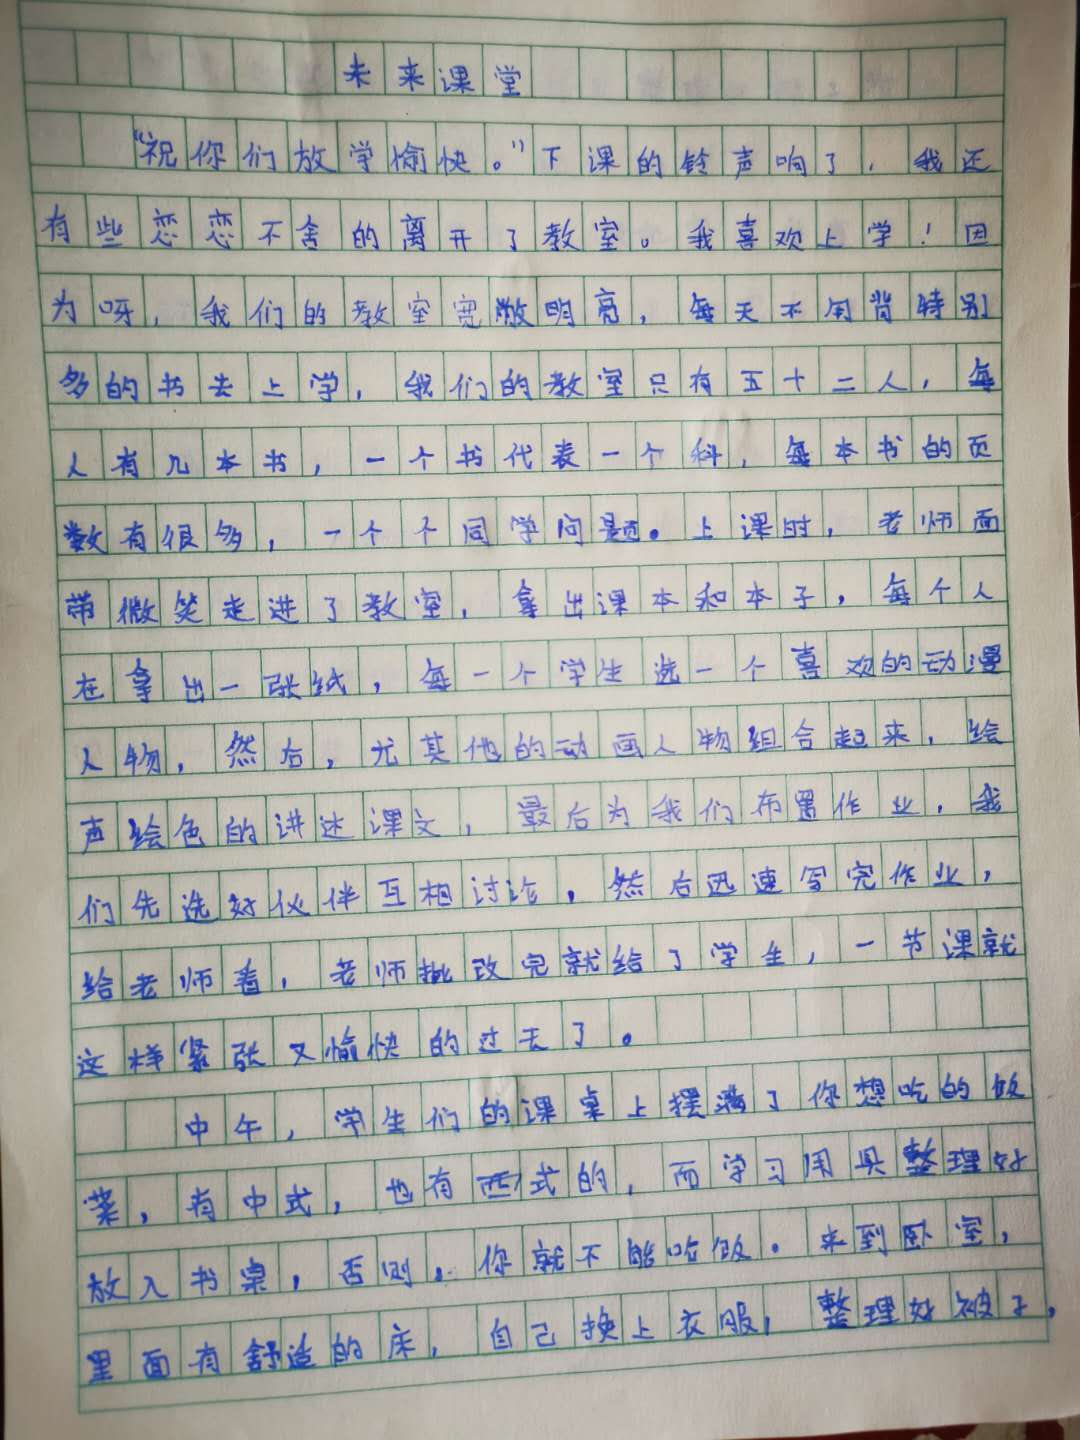 未来课堂
“祝你们放学愉快。”下课的铃声响了，我还
有些恋恋不舍的离开了教室。我喜欢上学！因
为呀，我们的教室宽敞明亮，每天不用背特别
多的书去上学，我们的教室只有五十二人，每
人有几本书，一个书代表一个科，每本书的页
数有很多，一个个同学问题。上课时，老师面
带微笑走进了教室，拿出课本和本子，每个人
在拿出一张纸，每一个学生选一个喜欢的动漫
人物，然后，尤其他的动画人物组合起来，绘
声绘色的讲述课文，最后为我们布置作业，我
们先选好伙伴互相讨论，然后迅速写完作业，
给老师看，老师批改完就给了学生，一节课就
这样紧张又愉快的过去了。
中午，学生们的课桌上摆满了你想吃的饭
菜，有中式，也有西式的，而学习用具整理好
放入书桌，否则，你就不能吃饭。来到卧室，
里面有舒适的床，自己换上衣服，整理好被子，